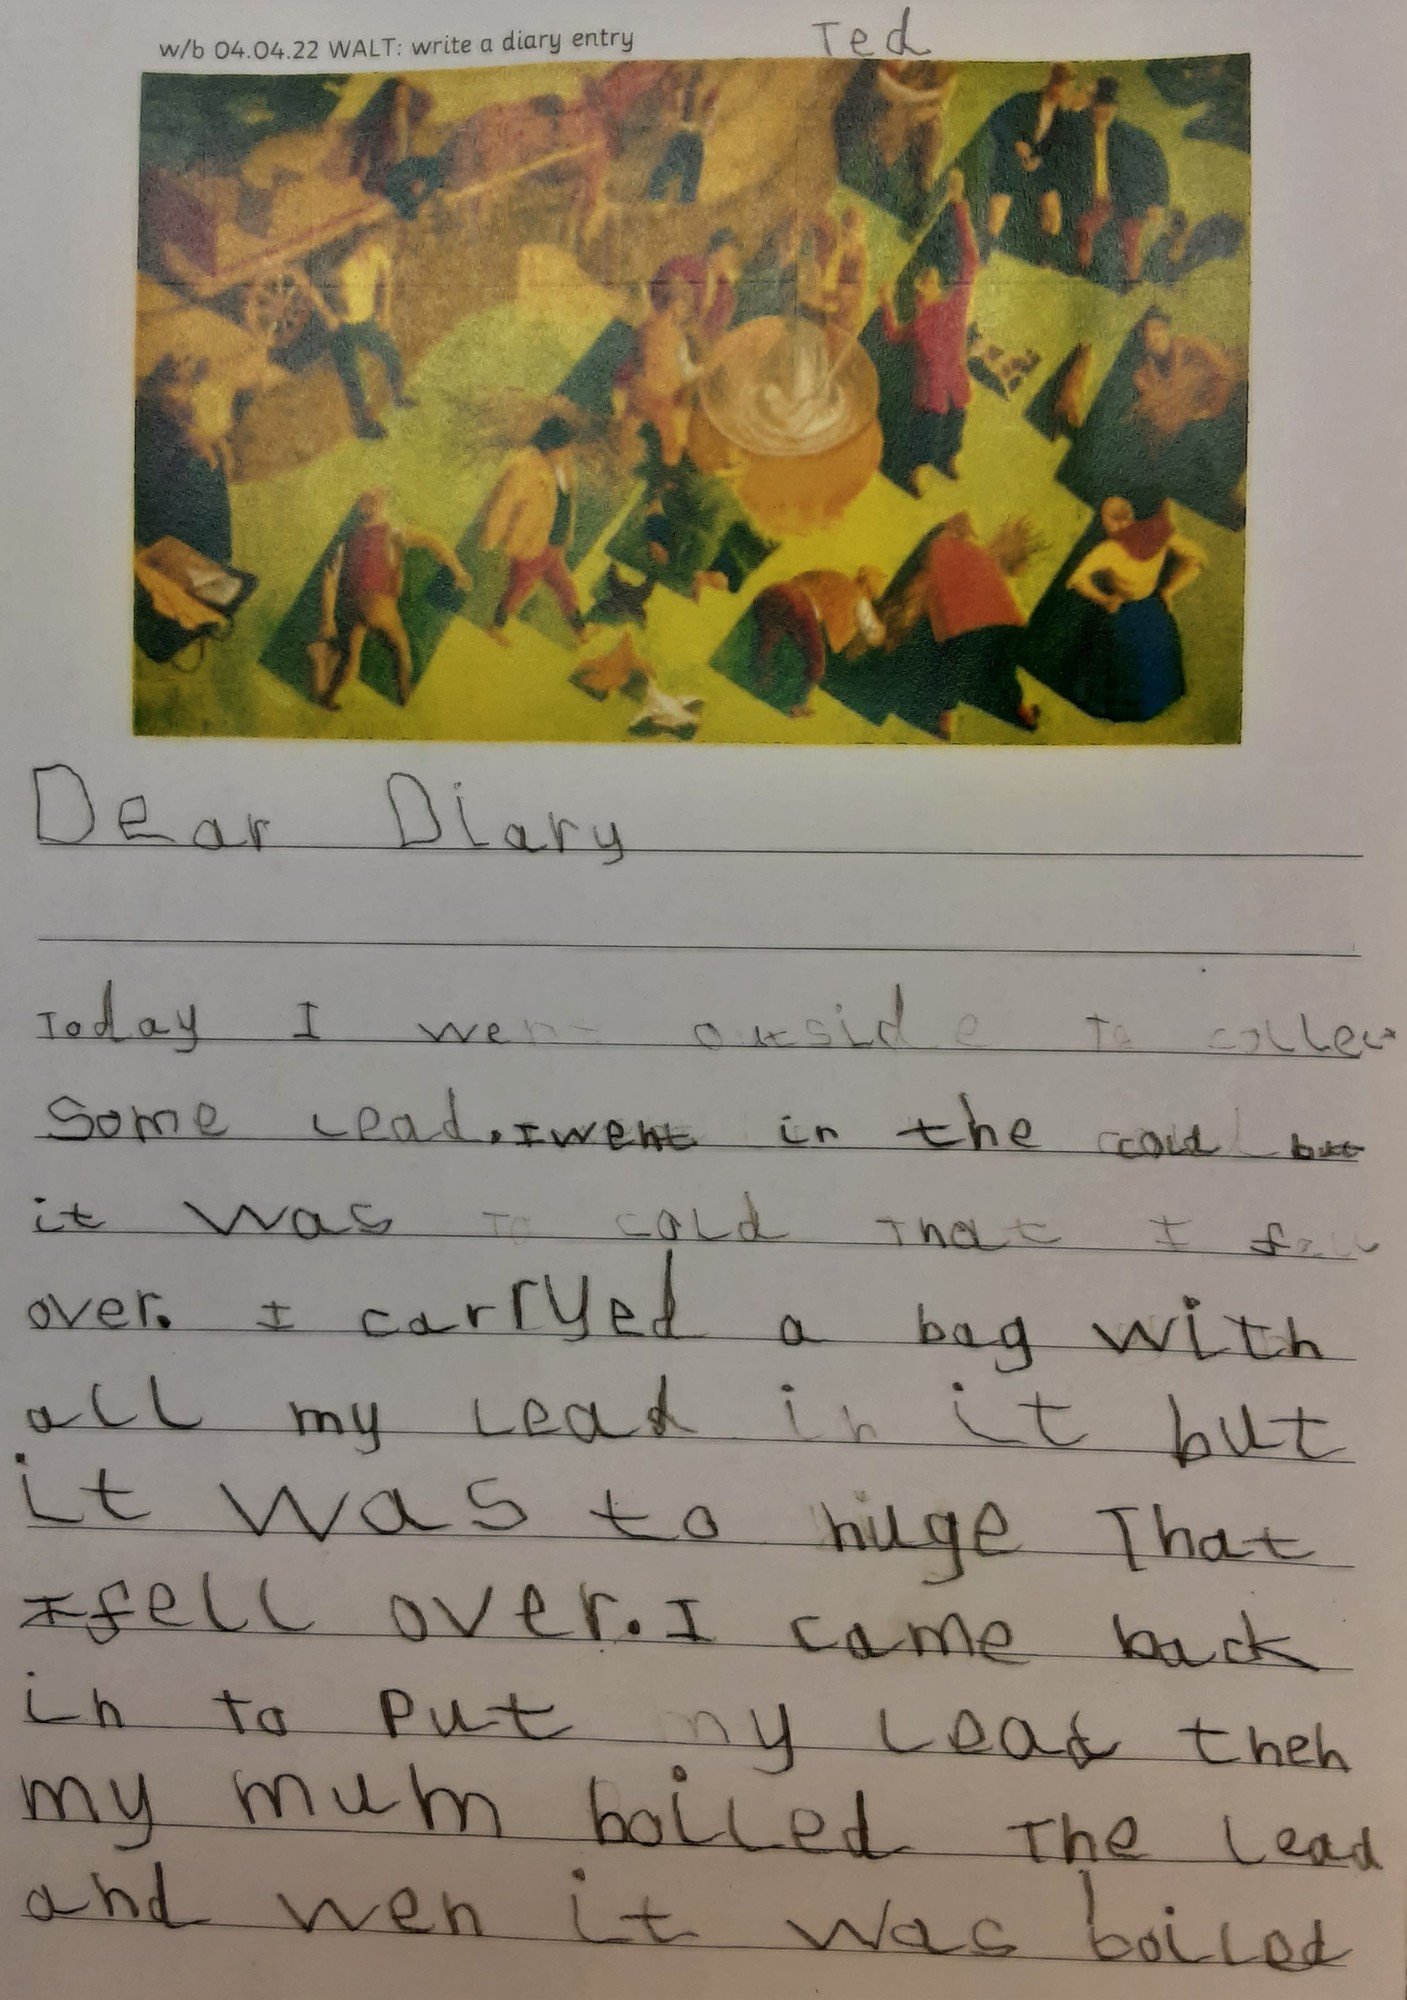 w/b 04.04.22 WALT: write a diary entry
Ted
Dear Diary
Today I went outside To collect
Some Lead. I went in the cold but
it was To cold That I fell
over. I carryed a bag with
all my Lead in it but
it was to huge That
I fell over. I came back
in to put my Lead then
my mum boiled The Lead
and wen it was boiled